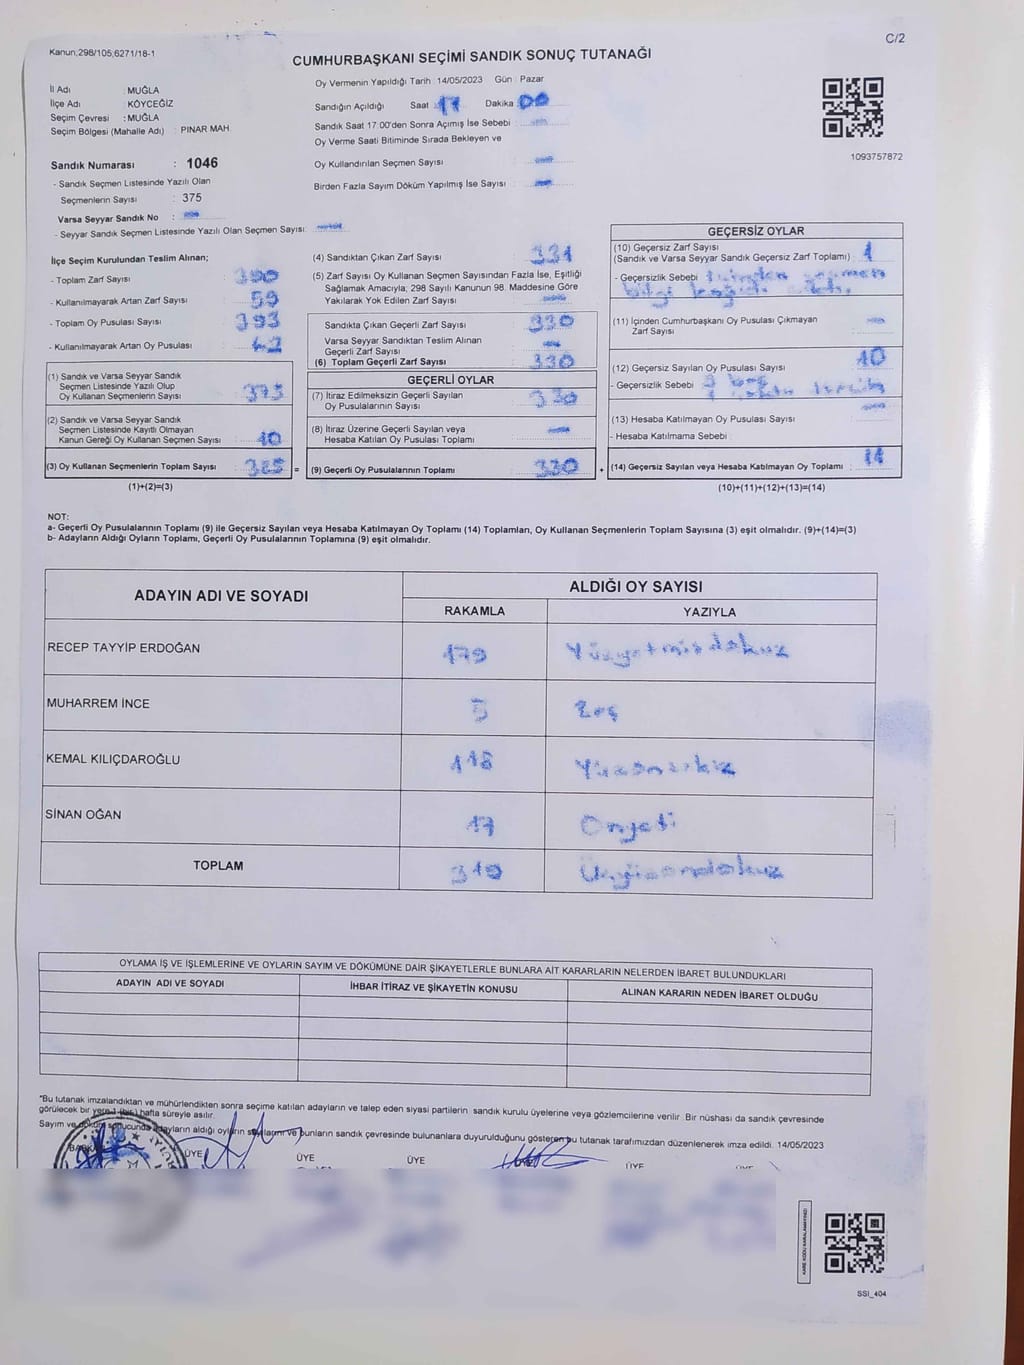 Kanun;298/105;6271/18-1
C/2
CUMHURBAŞKANI SEÇİMİ SANDIK SONUÇ TUTANAĞI
İl Adı : MUĞLA
İlçe Adı : KÖYCEĞİZ
Seçim Çevresi : MUĞLA
Seçim Bölgesi (Mahalle Adı) : PINAR MAH.
Sandık Numarası : 1046
- Sandık Seçmen Listesinde Yazılı Olan
Seçmenlerin Sayısı : 375
Varsa Seyyar Sandık No :
- Seyyar Sandık Seçmen Listesinde Yazılı Olan Seçmen Sayısı:
Oy Vermenin Yapıldığı Tarih :14/05/2023 Gün : Pazar
Sandığın Açıldığı Saat : 17 Dakika : 00
Sandık Saat 17:00'den Sonra Açımış İse Sebebi :
Oy Verme Saati Bitiminde Sırada Bekleyen ve
Oy Kullandırılan Seçmen Sayısı :
Birden Fazla Sayım Döküm Yapılmış İse Sayısı :
1093757872
İlçe Seçim Kurulundan Teslim Alınan;
- Toplam Zarf Sayısı : 390
- Kullanılmayarak Artan Zarf Sayısı : 59
- Toplam Oy Pusulası Sayısı : 393
- Kullanılmayarak Artan Oy Pusulası : 42
(1) Sandık ve Varsa Seyyar Sandık
Seçmen Listesinde Yazılı Olup
Oy Kullanan Seçmenlerin Sayısı : 375
(2) Sandık ve Varsa Seyyar Sandık
Seçmen Listesinde Kayıtlı Olmayan
Kanun Gereği Oy Kullanan Seçmen Sayısı : 10
(3) Oy Kullanan Seçmenlerin Toplam Sayısı : 385 =
(1)+(2)=(3)
(4) Sandıktan Çıkan Zarf Sayısı : 331
(5) Zarf Sayısı Oy Kullanan Seçmen Sayısından Fazla İse, Eşitliği
Sağlamak Amacıyla; 298 Sayılı Kanunun 98. Maddesine Göre
Yakılarak Yok Edilen Zarf Sayısı :
Sandıkta Çıkan Geçerli Zarf Sayısı : 330
Varsa Seyyar Sandıktan Teslim Alınan
Geçerli Zarf Sayısı :
(6) Toplam Geçerli Zarf Sayısı : 330
GEÇERLİ OYLAR
(7) İtiraz Edilmeksizin Geçerli Sayılan
Oy Pusulalarının Sayısı : 330
(8) İtiraz Üzerine Geçerli Sayılan veya
Hesaba Katılan Oy Pusulası Toplamı :
(9) Geçerli Oy Pusulalarının Toplamı : 330 +
GEÇERSİZ OYLAR
(10) Geçersiz Zarf Sayısı
(Sandık ve Varsa Seyyar Sandık Geçersiz Zarf Toplamı) : 1
- Geçersizlik Sebebi : İçinden seçmen
bilgi kağıdı
(11) İçinden Cumhurbaşkanı Oy Pusulası Çıkmayan
Zarf Sayısı :
(12) Geçersiz Sayılan Oy Pusulası Sayısı : 10
- Geçersizlik Sebebi : 3 boş
(13) Hesaba Katılmayan Oy Pusulası Sayısı :
- Hesaba Katılmama Sebebi :
(14) Geçersiz Sayılan veya Hesaba Katılmayan Oy Toplamı : 11
(10)+(11)+(12)+(13)=(14)
NOT:
a- Geçerli Oy Pusulalarının Toplamı (9) ile Geçersiz Sayılan veya Hesaba Katılmayan Oy Toplamı (14) Toplamları, Oy Kullanan Seçmenlerin Toplam Sayısına (3) eşit olmalıdır. (9)+(14)=(3)
b- Adayların Aldığı Oyların Toplamı, Geçerli Oy Pusulalarının Toplamına (9) eşit olmalıdır.
ADAYIN ADI VE SOYADI
ALDIĞI OY SAYISI
RAKAMLA YAZIYLA
RECEP TAYYİP ERDOĞAN 179 Yüzyetmişdokuz
MUHARREM İNCE 5 Beş
KEMAL KILIÇDAROĞLU 118 Yüzonsekiz
SİNAN OĞAN 17 Onyedi
TOPLAM 319 Üçyüzondokuz
OYLAMA İŞ VE İŞLEMLERİNE VE OYLARIN SAYIM VE DÖKÜMÜNE DAİR ŞİKAYETLERLE BUNLARA AİT KARARLARIN NELERDEN İBARET BULUNDUKLARI
ADAYIN ADI VE SOYADI İHBAR İTİRAZ VE ŞİKAYETİN KONUSU ALINAN KARARIN NEDEN İBARET OLDUĞU
"Bu tutanak imzalandıktan ve mühürlendikten sonra seçime katılan adayların ve talep eden siyasi partilerin sandık kurulu üyelerine veya gözlemcilerine verilir. Bir nüshası da sandık çevresinde
görülecek bir yere 1 (bir) hafta süreyle asılır.
Sayım ve döküm sonucunda adayların aldığı oyların sayılarını ve bunların sandık çevresinde bulunanlara duyurulduğunu gösteren bu tutanak tarafımızdan düzenlenerek imza edildi. 14/05/2023
ÜYE ÜYE ÜYE ÜYE ÜYE
KARE KODU KARALAMAYINIZ!
SSI_404